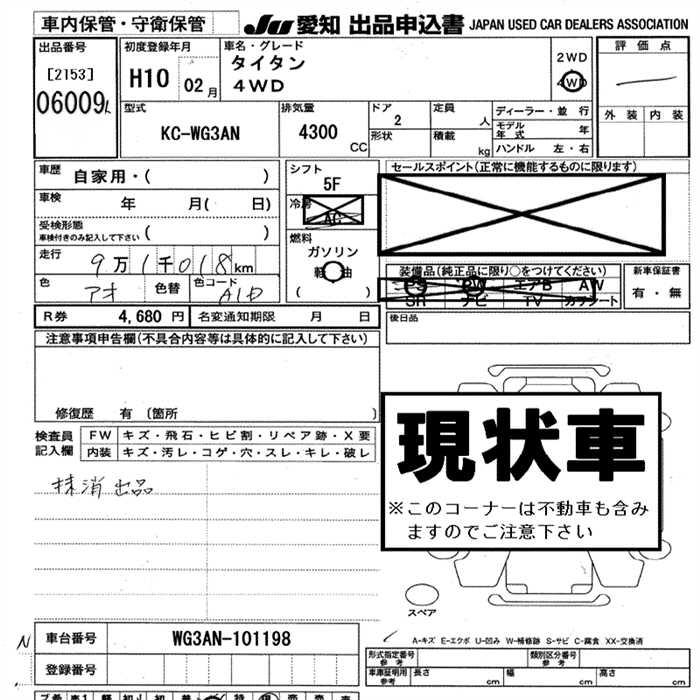 車内保管・守衛保管
JU 愛知 出品申込書 JAPAN USED CAR DEALERS ASSOCIATION
出品番号
[2153]
06009
初度登録年月
H10 02月
車名・グレード
タイタン
4WD
2WD
4WD
評価点
外装 内装
型式
KC-WG3AN
排気量
4300
CC
ドア
2
形状
定員
人
積載
kg
ディーラー・並行
モデル年式 年
ハンドル 左・右
車歴
自家用・( )
車検
年 月( 日)
受検形態
車検付きのみ記入して下さい ( )
走行
9万1千018km
色
アオ
色替
色コード
シフト
5F
冷房
AC
燃料
ガソリン
軽油
( )
セールスポイント(正常に機能するものに限ります)
装備品(純正品に限り○をつけてください)
PS PW エアB AW
SR ナビ TV カワシート
新車保証書
有・無
R券 4,680 円
名変通知期限 月 日
後日品
注意事項申告欄(不具合内容等は具体的に記入して下さい)
修復歴 有 〔箇所 〕
検査員
記入欄
FW キズ・飛石・ヒビ割・リペア跡・X要
内装 キズ・汚レ・コゲ・穴・スレ・キレ・破レ
抹消出品
現状車
※このコーナーは不動車も含み
ますのでご注意下さい
スペア
A-キズ E-エクボ U-凹み W-補修跡 S-サビ C-腐食 XX-交換済
N
車台番号 WG3AN-101198
登録番号
形式指定番号
参考
類別区分番号
参考
車庫証明用
参考
長さ cm 幅 cm 高さ cm